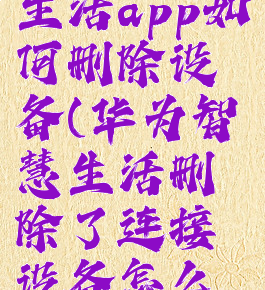 生活app如
何删除设
备(华为智
慧生活删
除了连接
设备怎么